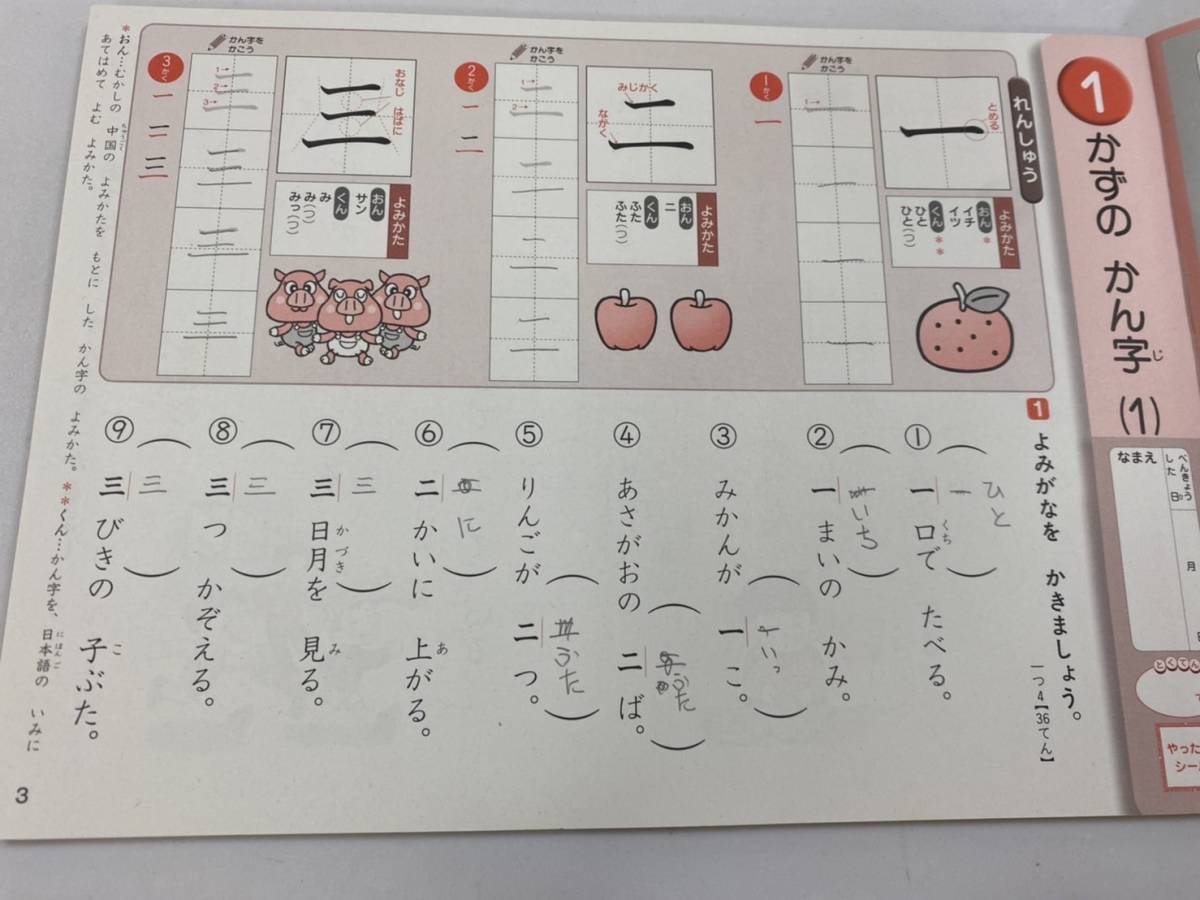 1 かずの かん字 (1)
じ
べんきょうした 日
月
なまえ
とくてん
れんしゅう
とめる
一
よみかた
おん*
イチ
イツ
くん**
ひと
ひと(つ)
かん字を
かこう
1→
1かく
一
みじかく
ながく
二
よみかた
おん
ニ
くん
ふた
ふた(つ)
かん字を
かこう
1→
2→
2かく
一
二
おなじ はばに
三
よみかた
おん
サン
くん
み
み(つ)
みっ(つ)
かん字を
かこう
1→
2→
3→
3かく
一
二
三
1 よみがなを かきましょう。
一つ4【36てん】
① 一口で たべる。
くち
一
ひと
② 一まいの かみ。
いち
③ みかんが 一こ。
いっ
④ あさがおの 二ば。
ふた
⑤ りんごが 二つ。
ふた
⑥ 二かいに 上がる。
あ
に
⑦ 三日月を 見る。
かづき
み
三
⑧ 三つ かぞえる。
三
⑨ 三びきの 子ぶた。
こ
三
*おん…むかしの 中国の よみかたを もとに した かん字の よみかた。 **くん…かん字を、日本語の いみに
ちゅうごく
にほんご
あてはめて よむ よみかた。
3